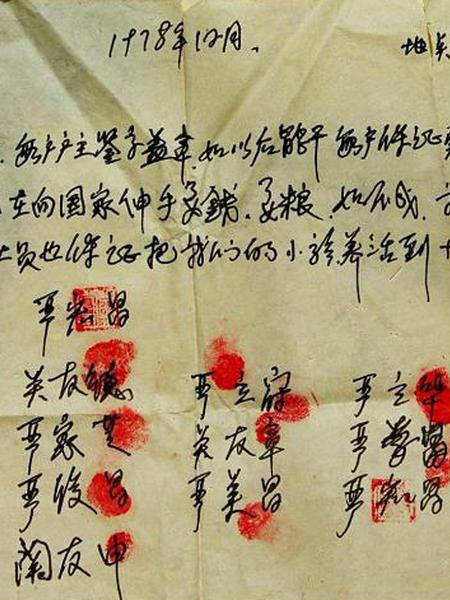 1978年12月. 地点
每户户主鉴字盖章. 如以后能干 每户保证
在向国家伸手要钱. 要粮. 如不成.
社员也保证把我们的小孩养活到
严宏昌
关友德 严立符 严立华
严家芝 关友章 严学昌
严俊昌 严美昌 严宏昌
关友申